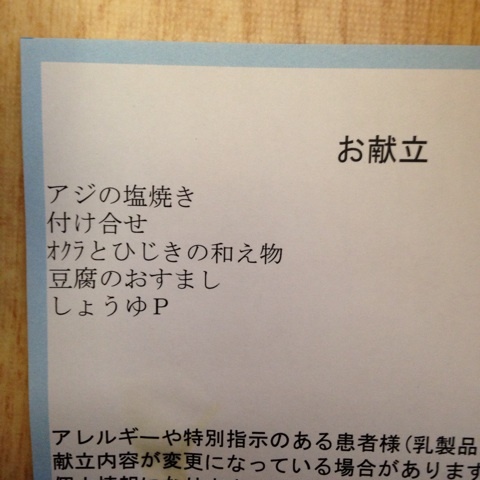 お献立
アジの塩焼き
付け合せ
ｵｸﾗとひじきの和え物
豆腐のおすまし
しょうゆＰ
アレルギーや特別指示のある患者様(乳製品
献立内容が変更になっている場合があります